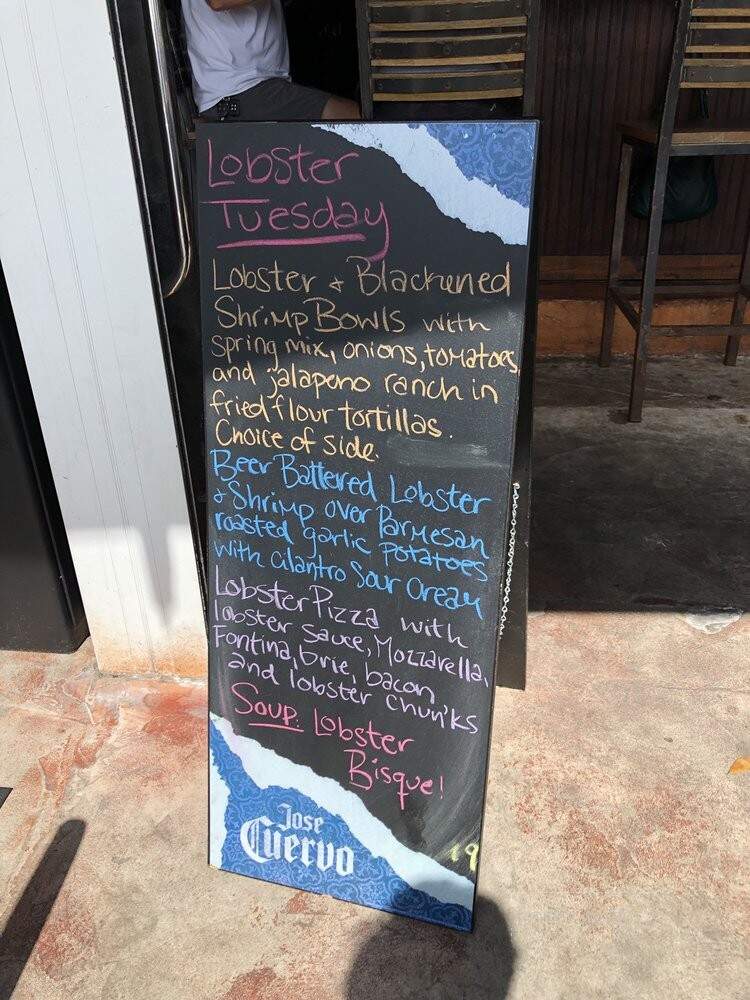 Lobster
Tuesday
Lobster & Blackened
Shrimp Bowls with
Spring mix, onions, tomatoes,
and jalapeno ranch in
fried flour tortillas.
Choice of Side.
Beer Battered Lobster
& Shrimp over Parmesan
roasted garlic potatoes
with cilantro Sour Cream
Lobster Pizza with
lobster sauce, Mozzarella,
Fontina, brie, bacon,
and lobster chunks
Soup: Lobster
Bisque!
Jose
Cuervo
19